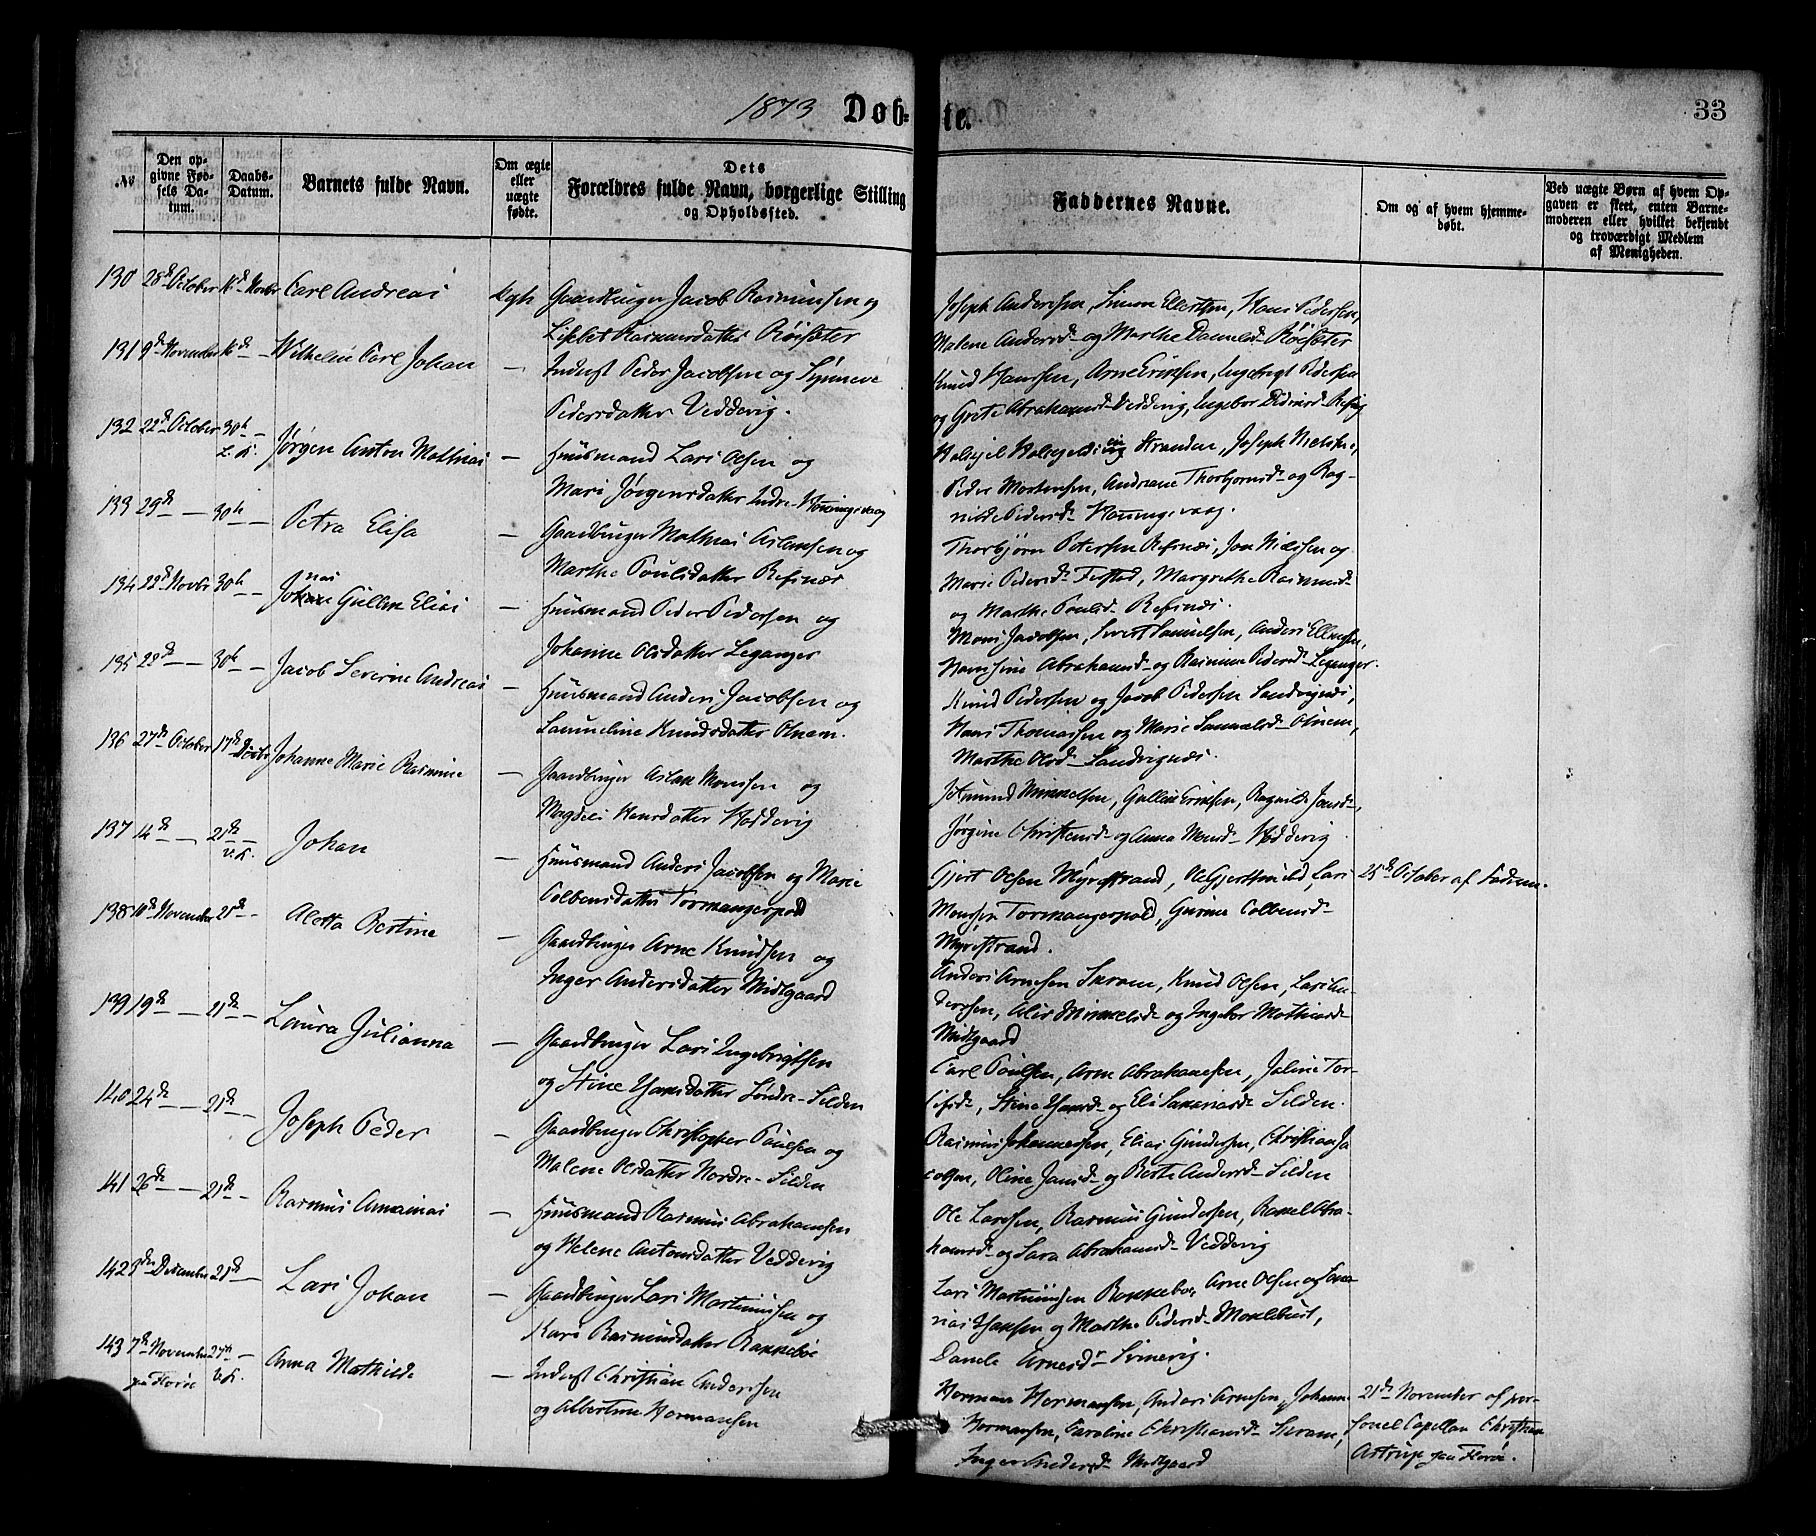 1873 Døbte. 33
No
Den opgivne Fødsels Datum.
Daabs-Datum.
Barnets fulde Navn.
Om ægte eller uægte fødte.
Dets Forældres fulde Navn, borgerlige Stilling og Opholdssted.
Faddernes Navne.
Om og af hvem hjemmedøbt.
Ved uægte Børn af hvem Opgaven er skeet, enten Barnemoderen eller hvilket bekjendt og troværdigt Medlem af Menigheden.
130 28de October Carl Andreas Ægte Gaardbruger Jacob Rasmussen og
Lisbet Rasmusdatter Røisæter
Joseph Anderssen, Simon Ellertsen, Hans Pedersen,
Malene Andersd. og Marthe Danielsd. Røisæter
131 9de November Wilhelm Carl Johan — Inderst Peder Jacobsen og Synneve
Pedersdatter Vedvig.
Knud Hanssen, Arne Eriksen, Ingebrigt Pedersen
og Grete Abrahamsd. Vedvig, Ingebor
132 22de October 30te Jørgen Anton Mathias — Huusmand Lars Olsen og
Mari Jørgensdatter Indre-Honningsvaag
Stranden, Joseph
Peder Mortensen, Andreane Thorbjørnsd. og Rag-
nilde Pedersd. Honningsvaag.
133 29de — 30te — Petra Elisa — Gaardbruger Mathias Aslaksen og
Marthe Poulsdatter Refsnæs
Thorbjørn Petersen Refsnæs, Jon Nielsen og
Marie Pedersd. Margrethe Rasmusd.
og Marthe Poulsd. Refsnæs.
134 22de Novbr 30te — Jonas Gullak Elias — Huusmand Peder Pedersen og
Johanne Olsdatter Leganger
Mons Jacobsen, Sivert Samuelsen, Anders Ellensen,
Hansine Abrahamsd. og Rasmine Pedersd. Leganger.
135 22de — 30te — Jacob Severin Andreas — Huusmand Anders Jacobsen og
Samueline Knudsdatter Osnem.
Knud Pedersen og Jacob Pedersen Sandvignæs,
Hans Thomassen og Marie Samuelsd. Osnem,
Marthe Olsd. Sandvignæs.
136 27de October 17de Decbr Johanne Marie Rasmine — Gaardbruger Aslak Monsen og
Magdeli Hansdatter Hoddevig
Amund Mikkelsen, Gullak Eriksen, Ragnilde Jansd.,
Jørgine Christensd. og Anna Monsd. Hoddevig.
137 14de — 21de Johan — Huusmand Anders Jacobsen og Marie
Colbensdatter Tormangerpold
Gjert Olsen Myrestrand, Ole Lars
Monsen Tormangerpold, Gurine Colbensd.
Myrestrand.
25de October af Faderen.
138 10de November 21de — Aletta Bertine — Gaardbruger Arne Knudsen og
Inger Andersdatter Midtgaard
Anders Arnesen Skram, Knud Olsen, Lars An-
dersen, Alis Mikkelsd. og Ingebor Mathiasd.
Midtgaard
139 19de — 21de — Laura Julianna — Gaardbruger Lars Ingebrigtsen
og Stine Hansdatter Søndre-Silden
Carl Poulsen, Arne Abrahamsen, Joline Tor-
Stine Hansd. og Eli Zakariasd. Silden.
140 24de — 21de — Joseph Peder — Gaardbruger Christopher Poulsen og
Malene Olsdatter Nordre-Silden
Rasmus Johannessen, Elias Gundersen, Christian Ja
cobsen, Oline Jansd. og Berte Andersd. Silden
141 26de — 21de — Rasmus Annanias — Huusmand Rasmus Abrahamsen
og Helene Antonsdatter Vedvig
Ole Larssen, Rasmus Gundersen, Rakel Abra-
hamsd. og Sara Abrahamsd. Vedvig
142 December 21de — Lars Johan — Gaardbruger Lars Martinussen og
Kari Rasmusdatter Rakkebø
Lars Martinussen Rakkebø, Arne Olsen og
Hanssen og Marthe Pedersd. Moklebust,
Danele Arnesd. Svinevig.
143 7de November paa Florøe 27de — Anna Mathilde — Inderst Christian Anderssen
og Albertine Hermansen
Herman Hermansen, Anders Arnesen, Johanne
Hermansen, Caroline Christiansd. Skram,
Inger Midtgaard
21de November af per-
sonel Capellan Christian
Astrup paa Florøe.